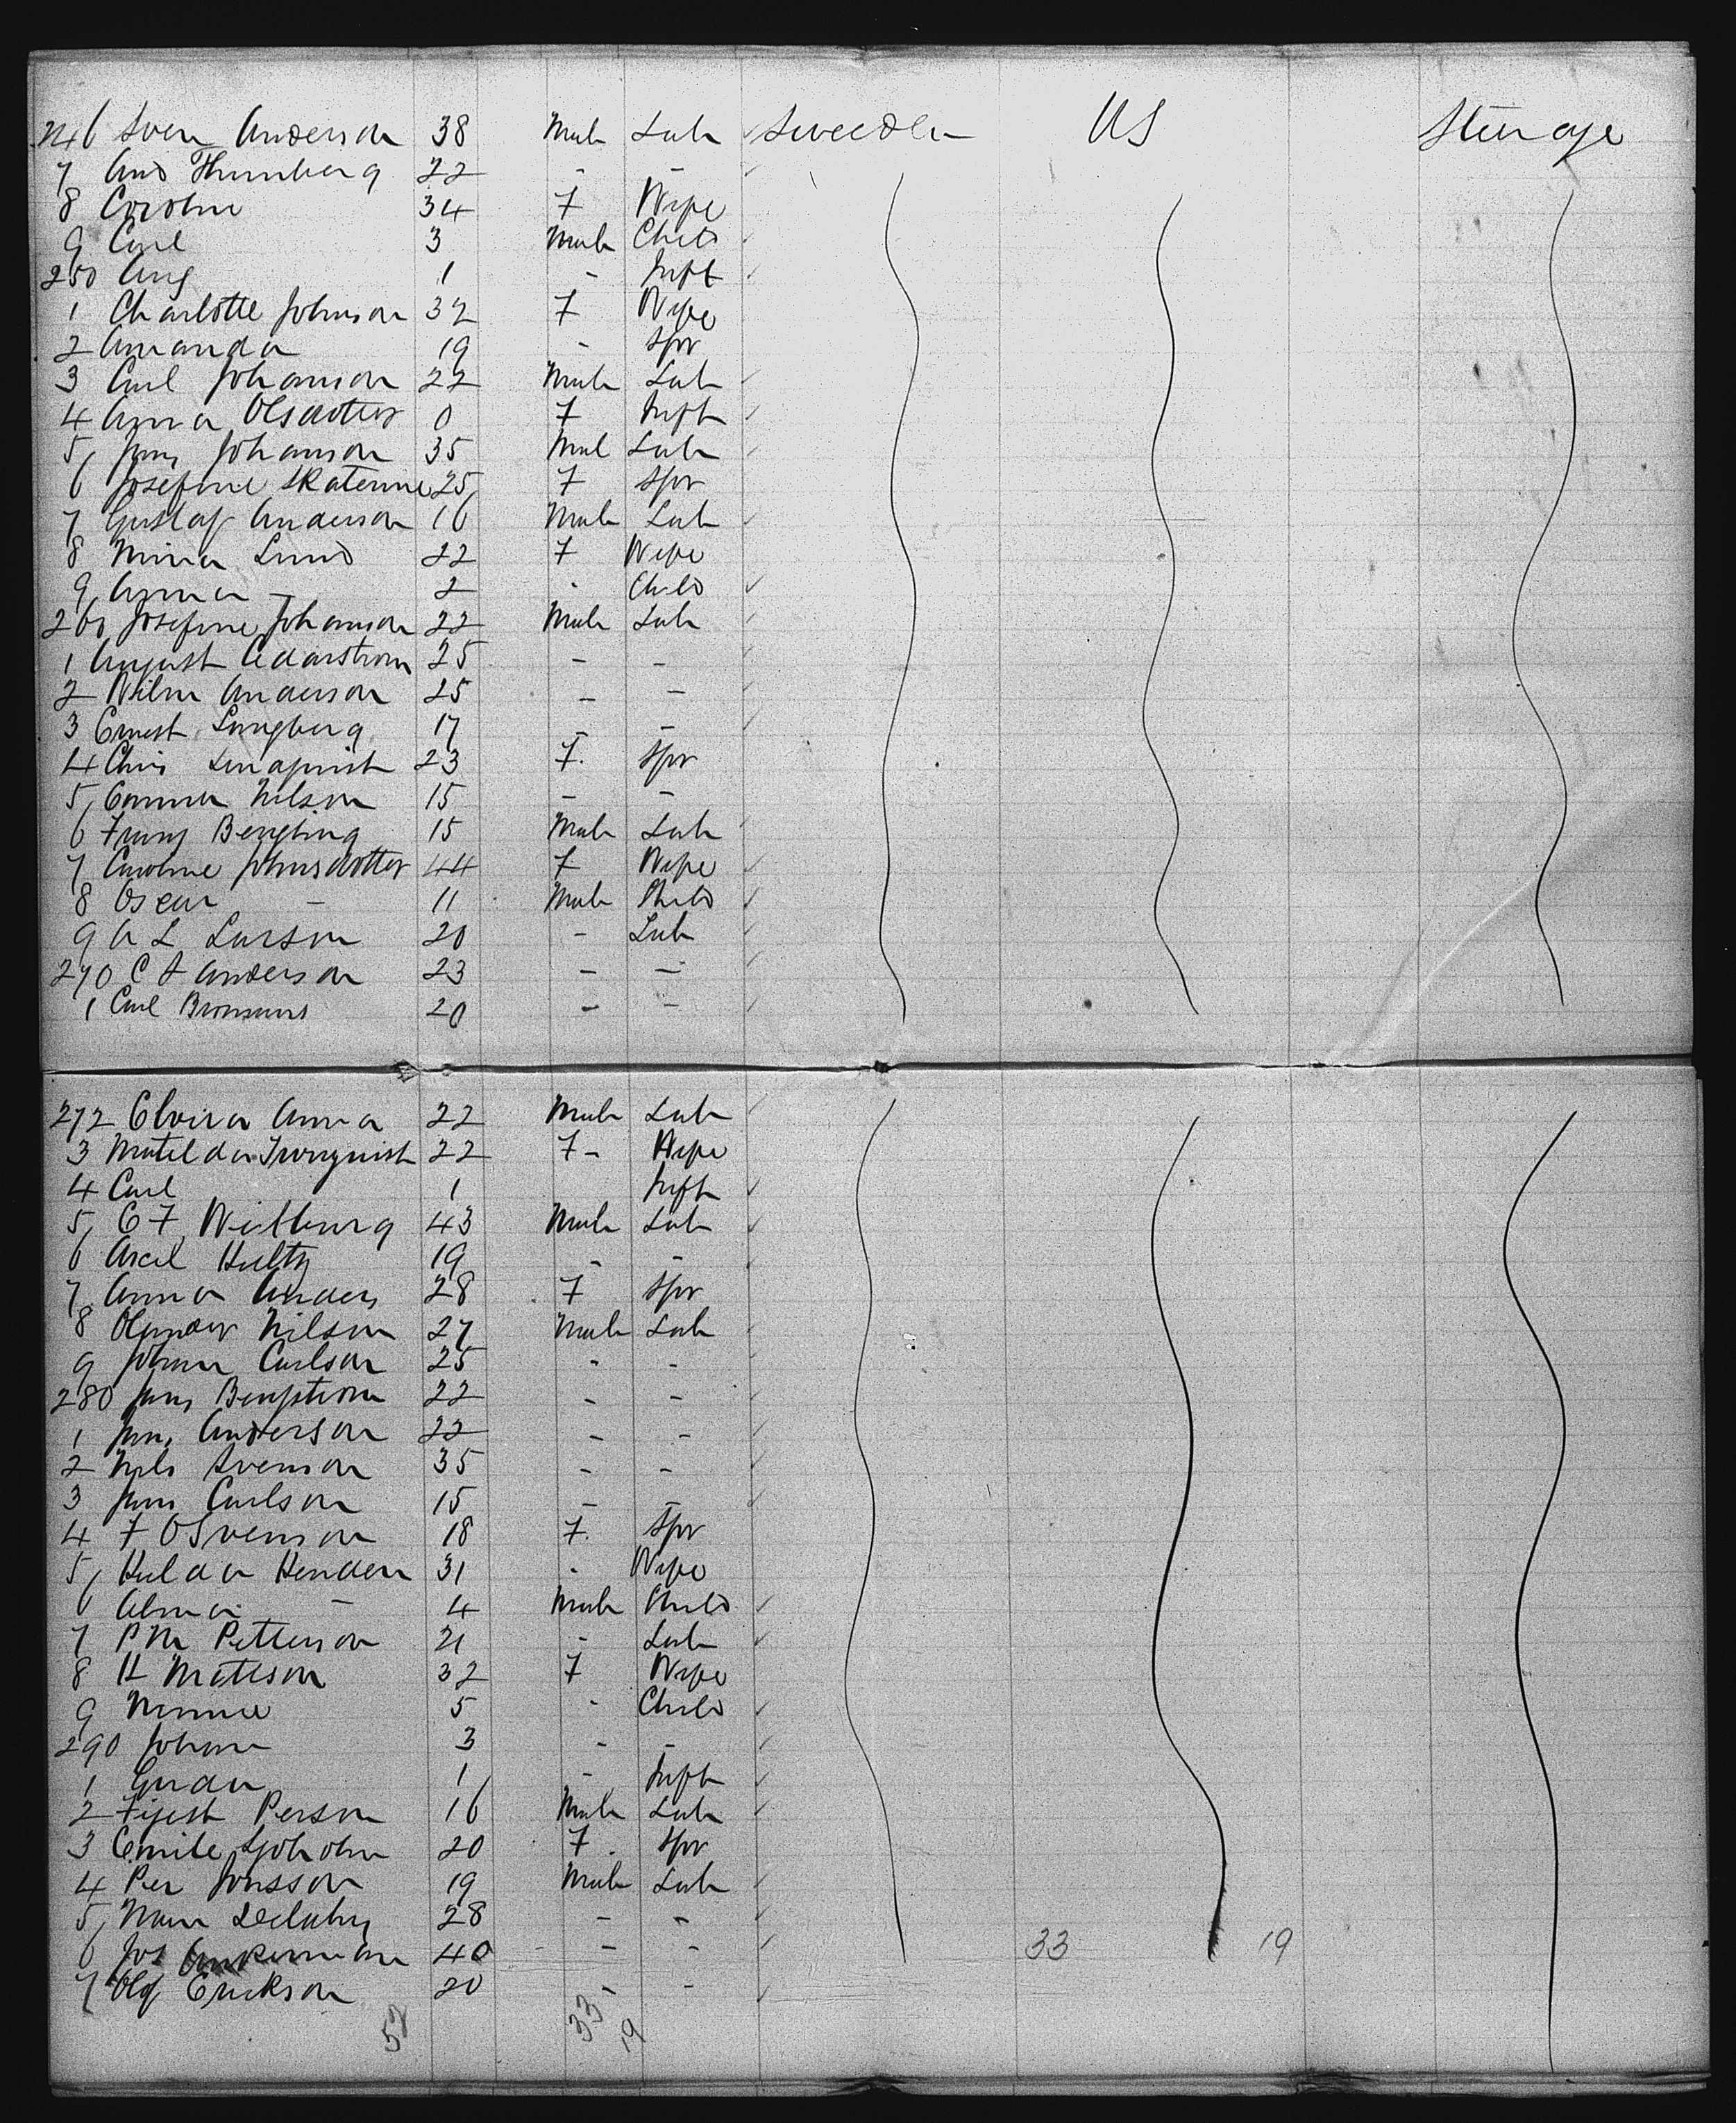 246 Sven Anderson 38 Male Lab Sweden US Steerage
7 And Thunberg 22 - -
8 Caroline 34 F Wife
9 Carl 3 Male Child
250 Aug 1 - Inft
1 Charlotte Johnson 32 F Wife
2 Amanda 19 - Spr
3 Carl Johanson 22 Male Lab
4 Anna Olsdotter 0 F Inft
5 Jons Johanson 35 Male Lab
6 Josefine Skaterine 25 F Spr
7 Gustaf Anderson 16 Male Lab
8 Mina Lund 22 F Wife
9 Anna - 2 - Child
260 Josefine Johanson 22 Male Lab
1 August Cedarstrom 25 - -
2 Wilm Anderson 25 - -
3 Ernest Lungberg 17 - -
4 Chris Lindquist 23 F. Spr
5 Emma Nilson 15 - -
6 Frans Bengting 15 Male Lab
7 Caroline Johnsdotter 44 F Wife
8 Oscar - 11 Male Child
9 A L Larson 20 - Lab
270 C A Anderson 23 - -
1 Carl 20 - -
272 Elvira Anna 22 Male Lab
3 Matilda 22 F - Wife
4 Carl 1 Inft
5 C F 43 Male Lab
6 Axel Hultz 19 - -
7 Anna Anders 28 F Spr
8 Nilson 27 Male Lab
9 Johan Carlson 25 - -
280 Jons Bengstrom 22 - -
1 Jons Anderson 22 - -
2 Nils Svenson 35 - -
3 Jons Carlson 15 - -
4 F O Svenson 18 F. Spr
5 Hulda 31 - Wife
6 Alma - 4 Male Child
7 P M Petterson 21 - Lab
8 H Matteson 32 F Wife
9 Nannie 5 - Child
290 Johan 3 - -
1 Gerda 1 - Inft
2 Person 16 Male Lab
3 Emile Sjoholm 20 F Spr
4 Per Jonsson 19 Male Lab
5 28 - -
6 Jos 40 - - - 33 19
7 Olof Erickson 20 - -
52 33 19